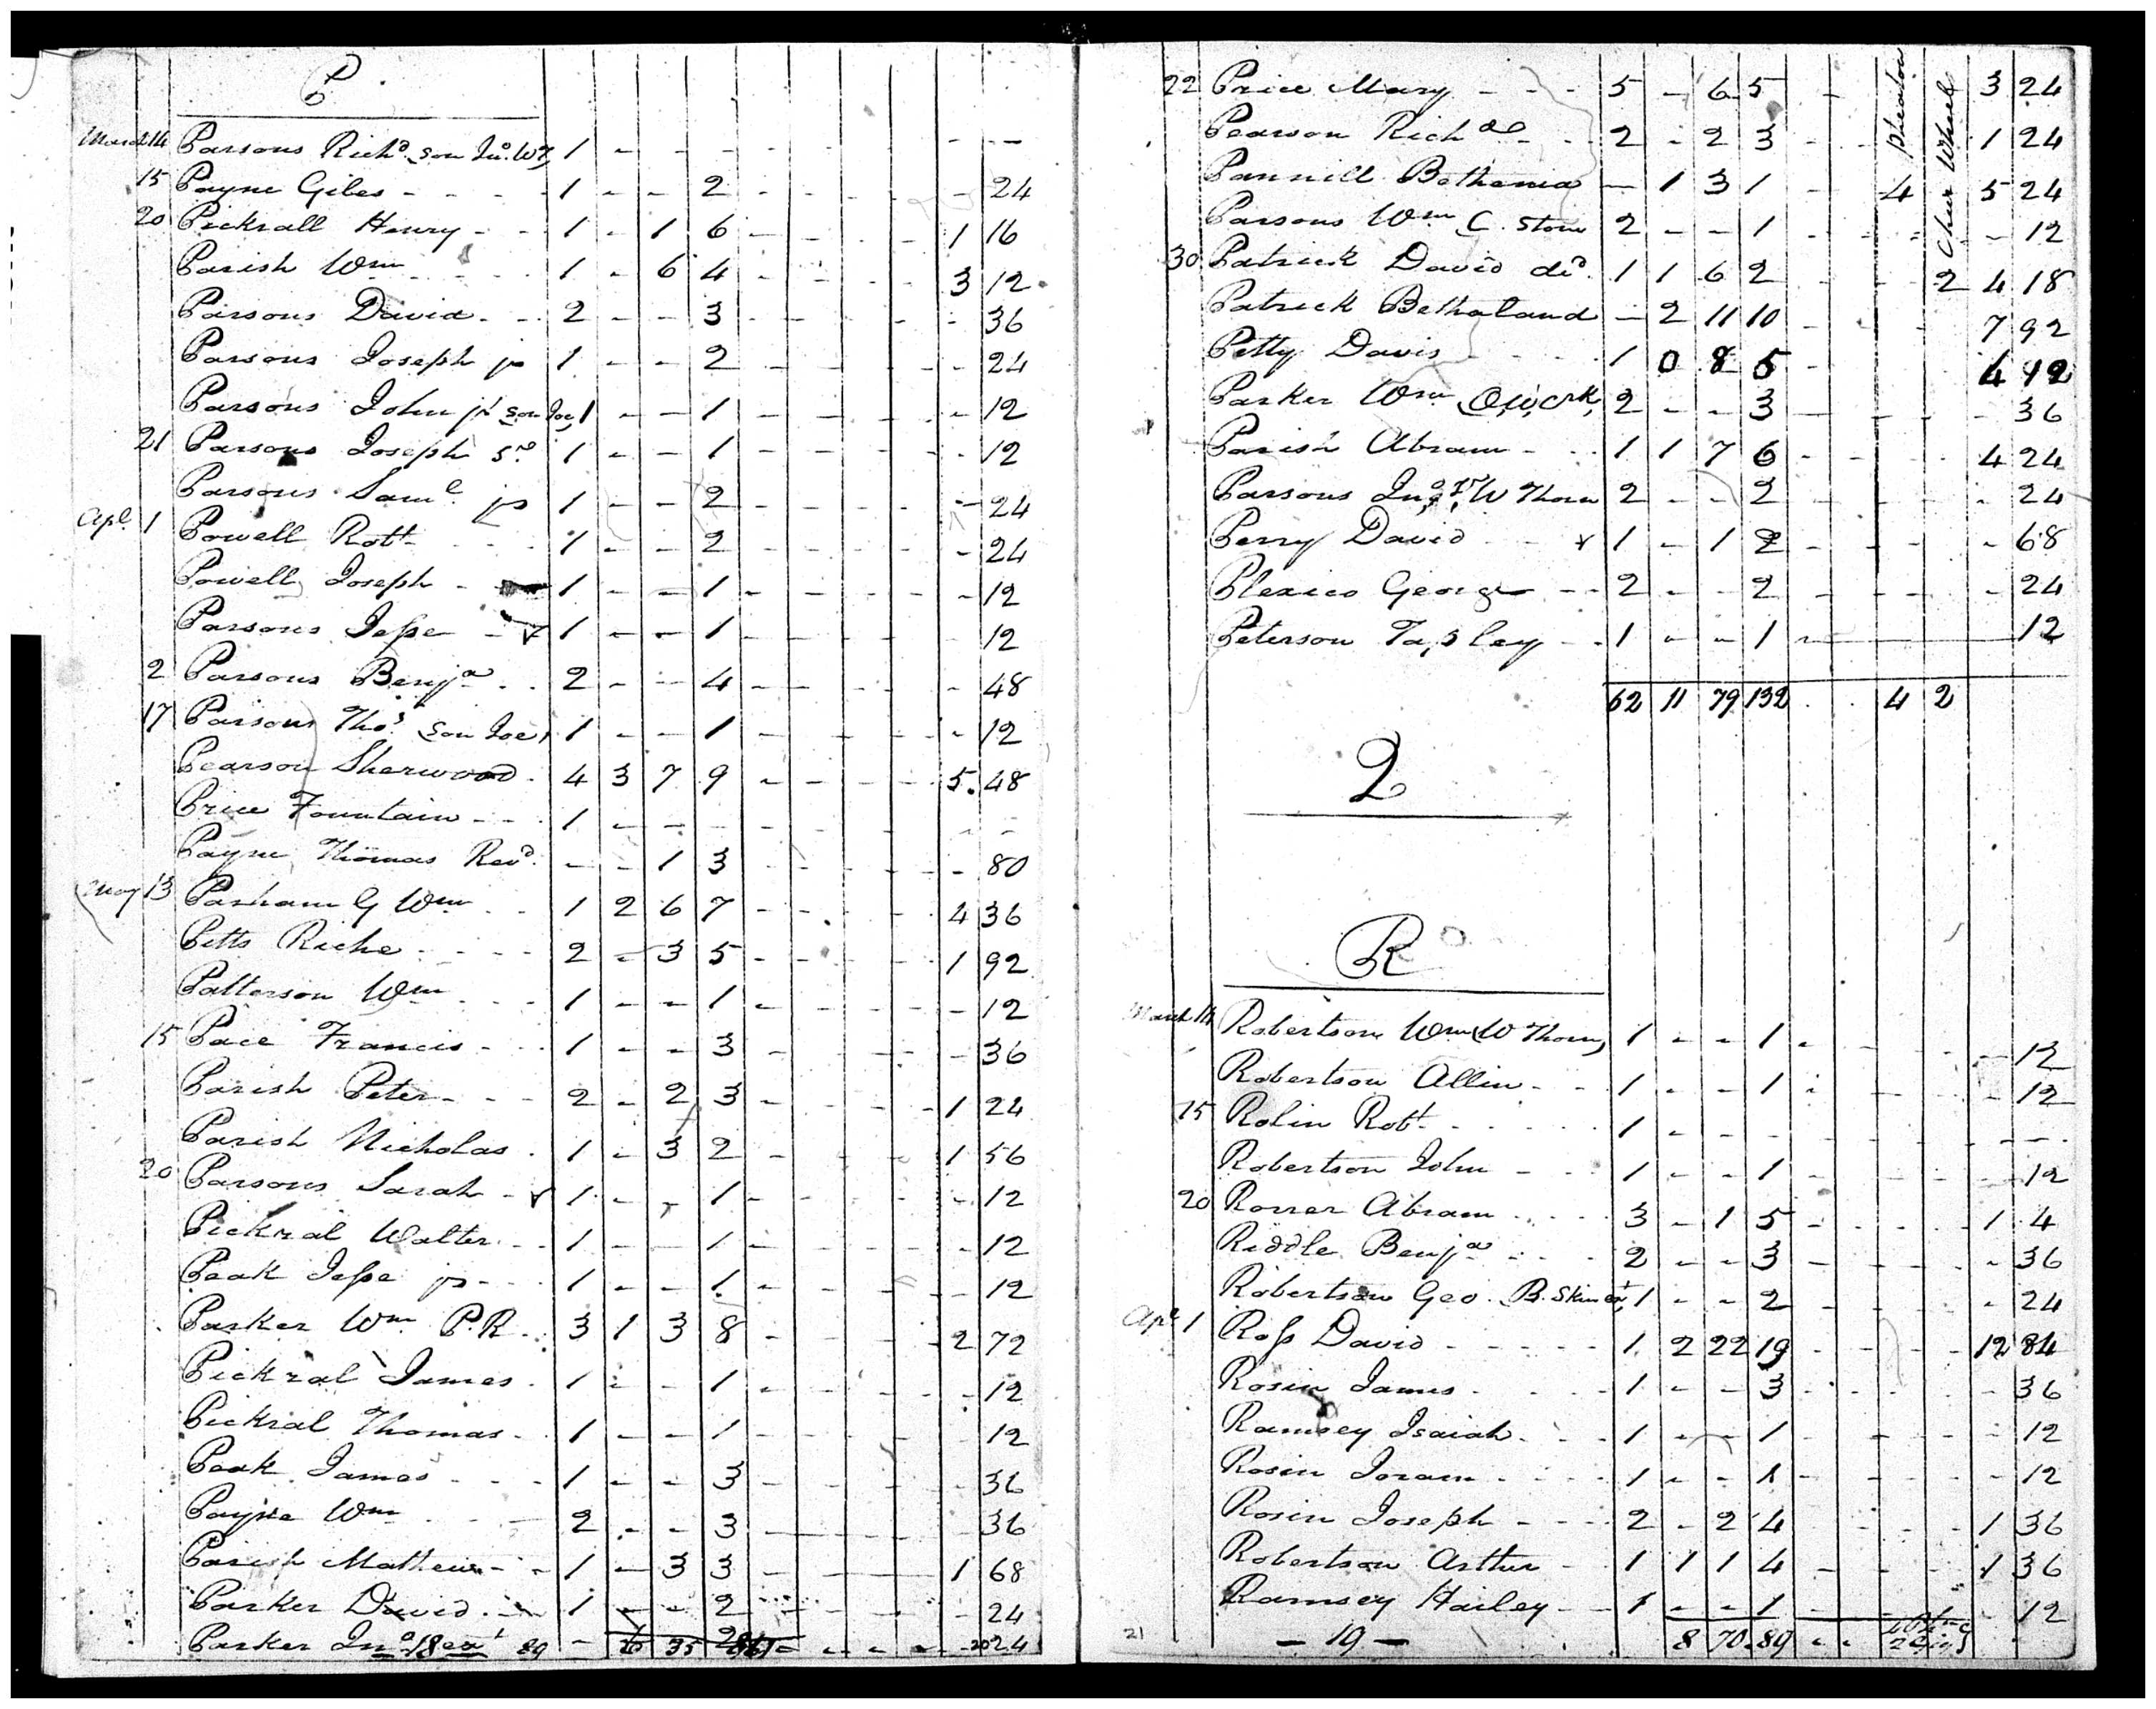 P
March 14 Parsons Richd. Son Jno. W. 1 - - - - - - - - -
15 Payne Giles - - - - 1 - - 2 - - - - - 24
20 Pickrall Henry - - 1 - 1 6 - - - - 1 16
Parish Wm - - - - 1 - 6 4 - - - - 3 12
Parsons David - - 2 - - 3 - - - - - 36
Parsons Joseph jr 1 - - 2 - - - - - 24
Parsons John jr son Joe, 1 - - 1 - - - - - 12
21 Parsons Joseph Sr 1 - - 1 - - - - - 12
Parsons Saml. jr 1 - - 2 - - - - - 24
Apl. 1 Powell Robt - - - 1 - - 2 - - - - - 24
Powell Joseph - 1 - - 1 - - - - - 12
Parsons Jesse - 1 - - 1 - - - - - 12
2 Parsons Benja - - 2 - - 4 - - - - - 48
17 Parsons Thos. Son Joe, 1 - - 1 - - - - - 12
Pearson Sherwood - 4 3 7 9 - - - - 5 48
Price Fountain - - - 1 - - - - - - - - -
Payne Thomas Revd. - - 1 3 - - - - - 80
May 13 Parham G Wm - - 1 2 6 7 - - - - 4 36
Petts Riche - - - - 2 - 3 5 - - - - 1 92
Patterson Wm - - - 1 - - 1 - - - - - 12
15 Pace Francis - - - 1 - - 3 - - - - - 36
Parish Peter - - - 2 - 2 3 - - - - 1 24
Parish Nicholas - 1 - 3 2 - - - - 1 56
20 Parsons Sarah - 1 - - 1 - - - - - 12
Pickral Walter - - 1 - - 1 - - - - - 12
Peak Jesse jr - - - 1 - - 1 - - - - - 12
Parker Wm P.R. - 3 1 3 8 - - - - 2 72
Pickral James - 1 - - 1 - - - - - 12
Pickral Thomas - 1 - - 1 - - - - - 12
Peak James - - - 1 - - 3 - - - - - 36
Payne Wm - - - 2 - - 3 - - - - - 36
Parish Mathew - - 1 - 3 3 - - - - 1 68
Parker David - - 1 - - 2 - - - - - 24
Parker Jno 18 - - - 2 - - - - 24
35
22 Price Mary - - - 5 - 6 5 - 3 24
Pheaton
Chair Wheel
Pearson Richd - - - 2 - 2 3 - - - - 1 24
Pannill Bethenia - 1 3 1 - - 4 5 24
Parsons Wm C. Stone 2 - - 1 - - - - - 12
30 Patrick David decd. 1 1 6 2 - - - 2 4 18
Patrick Bethaland - 2 11 10 - - - - 7 92
Petty Davis - - - - 1 0 8 5 - - - - 4 92
Parker Wm O.W.Crk, 2 - - 3 - - - - - 36
Parish Abram - - - 1 1 7 6 - - - - 4 24
Parsons Jno. W Thorn 2 - - 2 - - - - - 24
Perry David - - 1 - 1 2 - - - - - 68
Plexico George - - 2 - - 2 - - - - - 24
Peterson Tapley - - 1 - - 1 - 12
62 11 79 132 - - 4 2
Q
R
March 14 Robertson Wm (W Thorn) 1 - - 1 - - - - - 12
Robertson Allin - - 1 - - 1 - - - - - 12
15 Rolin Robt - - - - - 1 - - - - - - - - -
Robertson John - - - 1 - - 1 - - - - - 12
20 Rorrer Abram - - - - 3 - 1 5 - - - - 1 4
Riddle Benja - - - - 2 - - 3 - - - - - 36
Robertson Geo. B. Skinet, 1 - - 2 - - - - - 24
Apl 1 Ross David - - - - - 1 2 22 19 - - - - 12 84
Rosin James - - - - 1 - - 3 - - - - - 36
Ramsey Isaiah - - - 1 - - 1 - - - - - 12
Rosin Joram - - - - 1 - - 1 - - - - - 12
Rosin Joseph - - - 2 - 2 4 - - - - 1 36
Robertson Arthur - 1 1 1 4 - - - - 1 36
Ramsey Hailey - - 1 - - 1 - - 12
21 - 19 - 8 70 89 - -